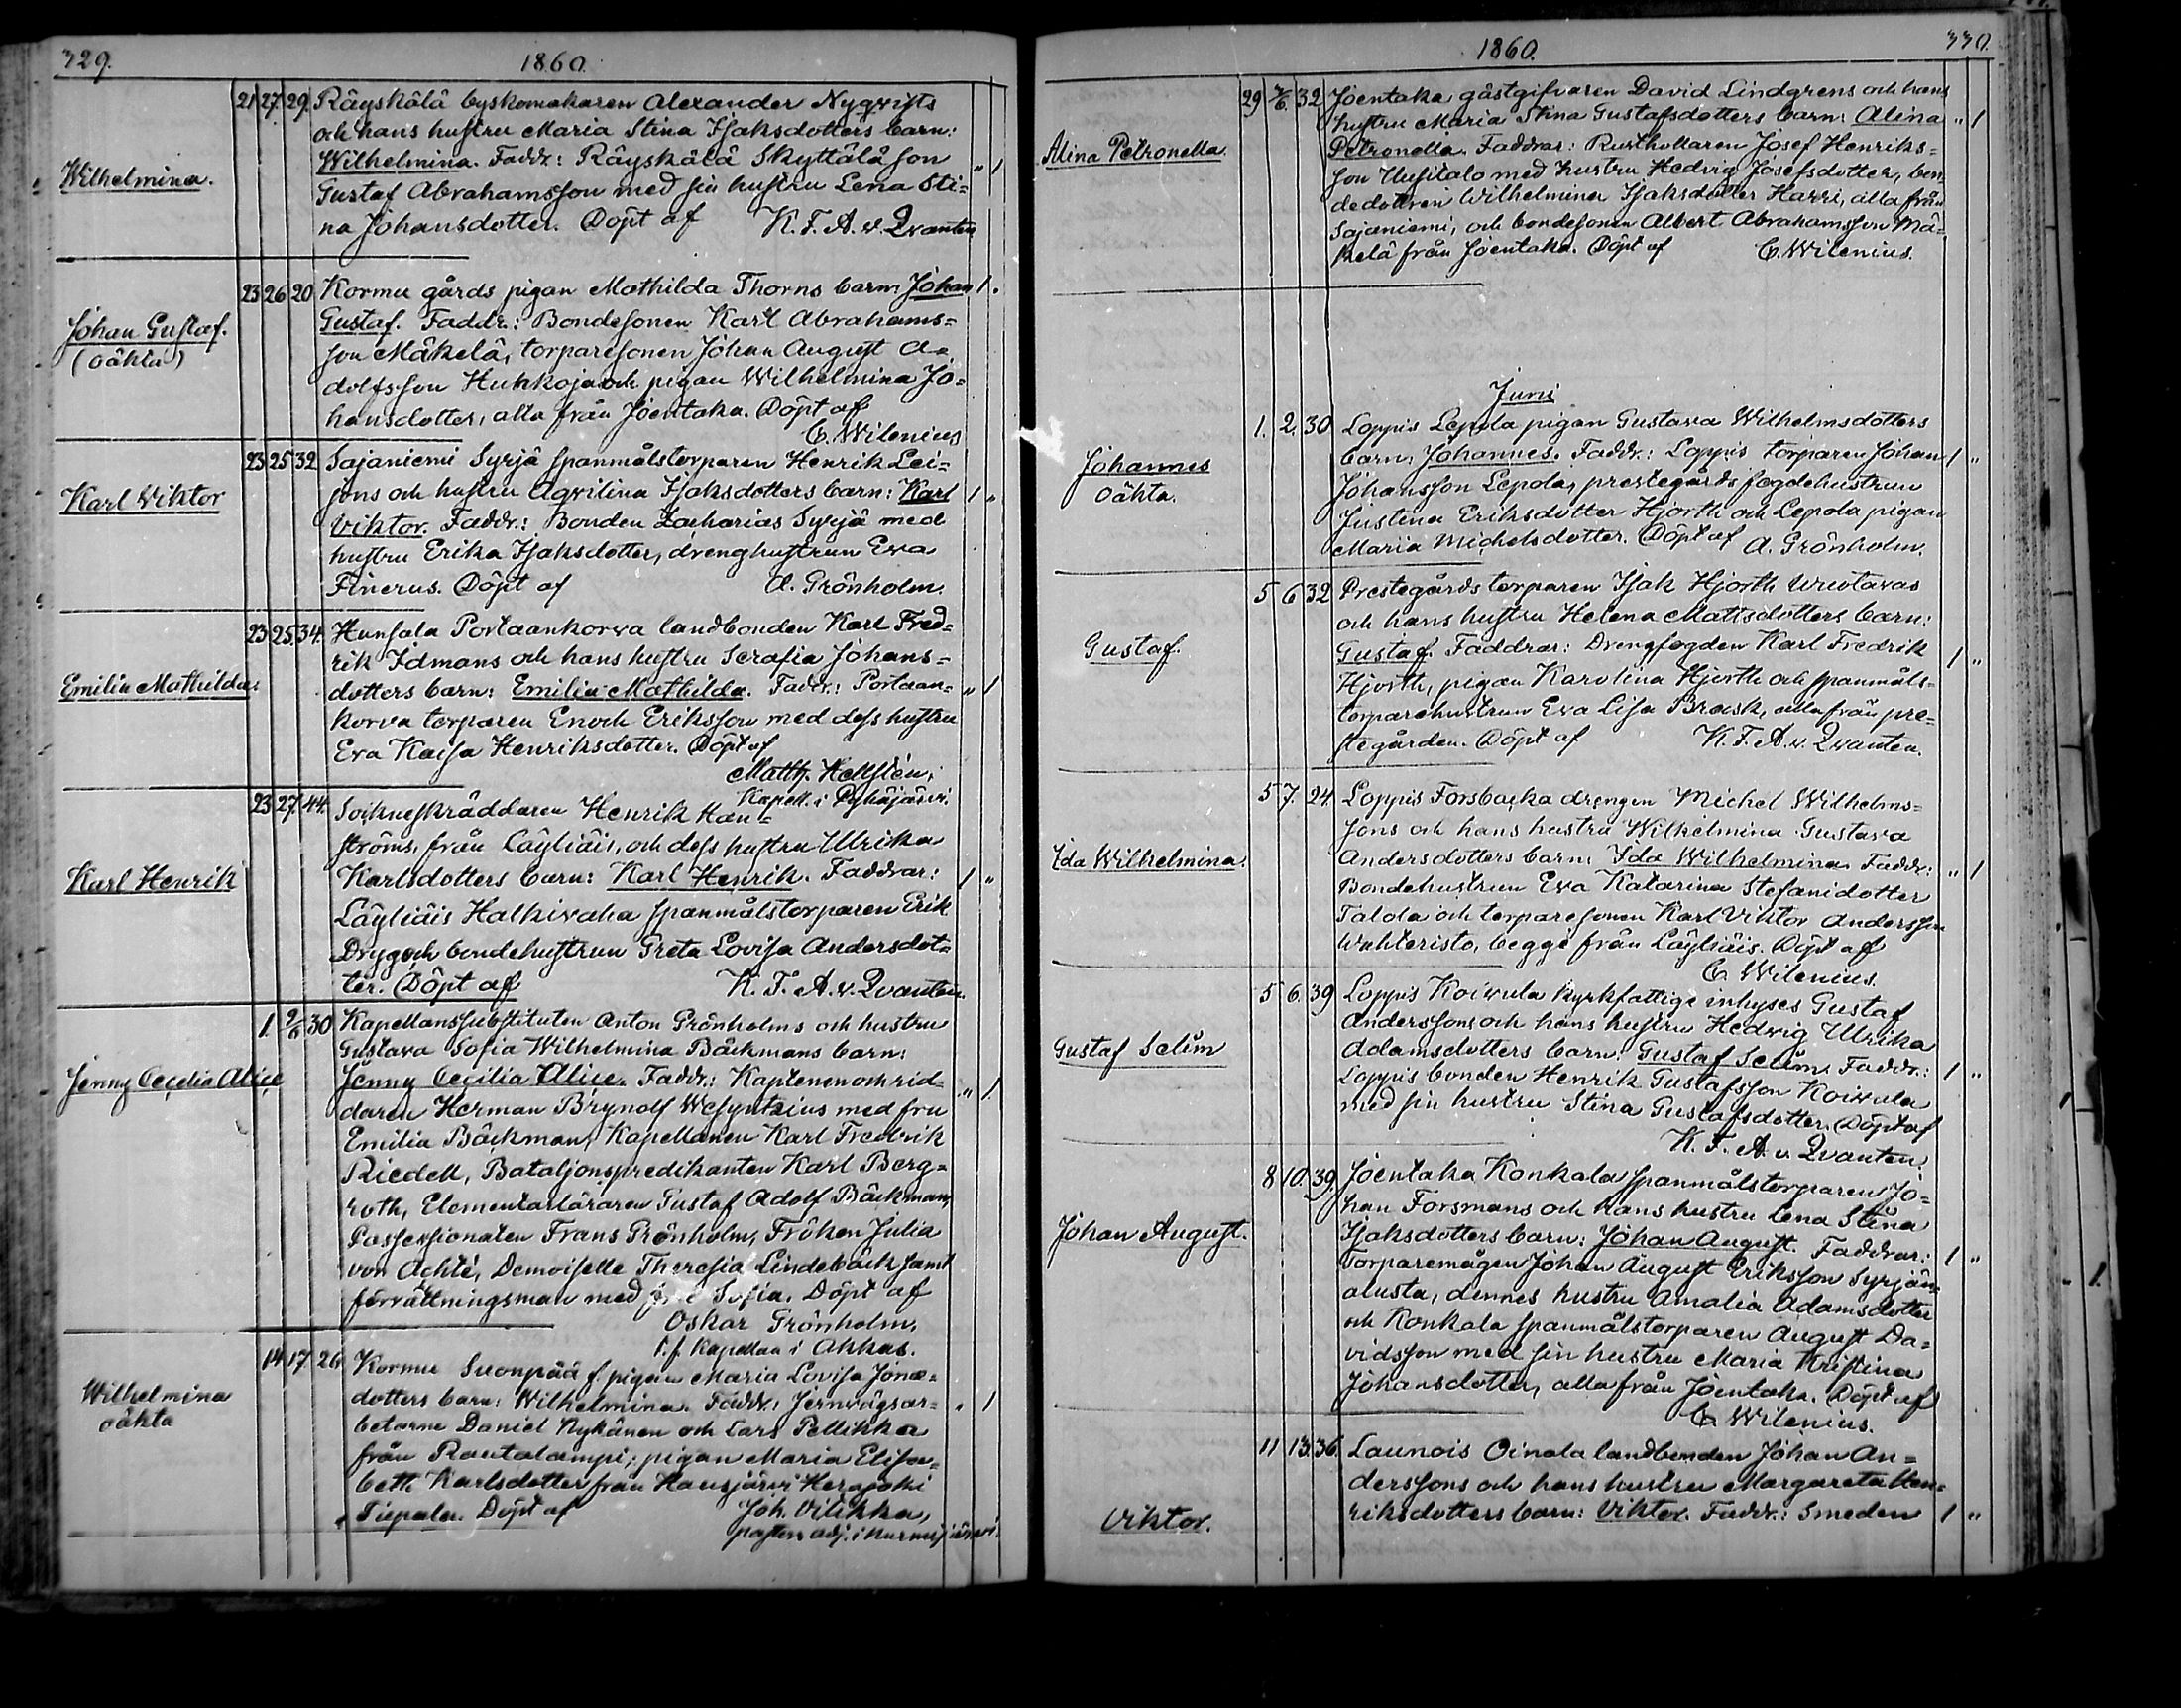 329.
1860.
Wilhelmina.
21 27. 29. Räyskälä byskomakaren Alexander Nyqvists
och hans hustru Maria Stina Isaksdotters barn:
Wilhelmina. Faddr.: Räyskälä Skyttälä son
Gustaf Abrahamsson med sin hustru Lena Sti=
na Johansdotter. Döpt af K. F. A. v. Qvanten
" 1
Johan Gustaf.
(oäkta)
23 26 20 Kormu gårds pigan Mathilda Thorns barn: Johan 1.
Gustaf. Faddr.: Bondesonen Karl Abrahams=
son Mäkelä, torparesonen Johan August A=
dolfsson Huhkoja och pigan Wilhelmina Jo=
hansdotter, alla från Joentaka. Döpt af
C. Wilenius
Karl Viktor
23 25 32 Sajaniemi Syrjä spanmålstorparen Henrik Lei=
jons och hustru Agvilina Isaksdotters barn: Karl 1 "
Viktor. Faddr.: Bonden Zacharias Syrjä med
hustru Erika Isaksdotter, drenghustrun Eva
Finerus. Döpt af A. Grönholm.
Emilia Mathilda.
23 25. 34. Hunsala Portaankorva landbonden Karl Fred=
rik Idmans och hans hustru Serafia Johans=
dotters barn: Emilia Mathilda. Faddr.: Portaan= " 1
korva torparen Enoch Eriksson med dess hustru
Eva Kaisa Henriksdotter. Döpt af
Matth. Hellstén,
Kapell. i Pyhäjärvi.
Karl Henrik
23 27. 44. Sockneskräddaren Henrik Han=
ströms, från Läyliäis, och dess hustru Ulrika
Karlsdotters barn: Karl Henrik. Faddrar: 1 "
Läyliäis Halkivaha spanmålstorparen Erik
Dryg och bondehustrun Greta Lovisa Andersdot=
ter. Döpt af K. F. A. v. Qvanten.
Jenny Cecilia Alice
1. 9/6 30 Kapellanssubstituten Anton Grönholms och hustru
Gustava Sofia Wilhelmina Bäckmans barn:
Jenny Cecilia Alice. Faddr.: Kaptenen och rid=
daren Herman Brynolf Wesyntzius med fru " 1
Emilia Bäckman, Kapellanen Karl Fredrik
Riedell, Bataljonspredikanten Karl Berg=
roth, Elementarläraren Gustaf Adolf Bäckman,
Possessionaten Frans Grönholm, Fröken Julia
von Achté, Demoiselle Theresia Lindebäck samt
förrättningsman med fru Sofia. Döpt af
Oskar Grönholm,
t. f. Kapellan i Akkas.
Wilhelmina
oäkta
14 17. 26. Kormu Suonpää f. pigan Maria Lovisa Jonæ=
dotters barn: Wilhelmina. Faddr.: Jernvägsar= " 1
betarne Daniel Nykänen och Lars Pellikka
från Rautalampi; pigan Maria Elisa=
beth Karlsdotter från Hausjärvi Herajoki
Tiepala. Döpt af Joh. Vilikka,
pastors adj. i Nurmijärvi.
330.
1860.
Alina Petronella.
29 7/6. 32 Joentaka gästgifvaren David Lindgrens och hans
hustru Maria Stina Gustafsdotters barn: Alina " 1
Petronella. Faddrar: Rusthollaren Josef Henriks=
son Uusitalo med hustru Hedvig Josefsdotter, bon=
dedottren Wilhelmina Isaksdotter Harri, alla från
Sajaniemi, och bondesonen Albert Abrahamsson Mä=
kelä från Joentaka. Döpt af C. Wilenius.
Juni
Johannes
oäkta.
1. 2. 30 Loppis Lepola pigan Gustava Wilhelmsdotters
barn: Johannes. Faddr.: Loppis torparen Johan 1 "
Johansson Lepola, prestegårds fogdehustrun
Justina Eriksdotter Hjorth och Lepola pigan
Maria Michelsdotter. Döpt af A. Grönholm.
Gustaf.
5 6 32 Prestegårds torparen Isak Hjorth Uuotavas
och hans hustru Helena Mattsdotters barn:
Gustaf. Faddrar: Drengfogden Karl Fredrik 1 "
Hjorth, pigan Karolina Hjorth och spanmåls=
torparehustrun Eva Lisa Brask, alla från pre=
stegården. Döpt af K. F. A. v. Qvanten.
Ida Wilhelmina.
5 7. 24. Loppis Forsbacka drengen Michel Wilhelms=
sons och hans hustru Wilhelmina Gustava
Andersdotters barn: Ida Wilhelmina. Faddr.: " 1
Bondehustrun Eva Katarina Stefanidotter
Talola och torparesonen Karl Viktor Andersson
Wahteristo, begge från Läyliäis. Döpt af
C. Wilenius.
Gustaf Selim
5 6. 39 Loppis Koivula kyrkfattige inhyses Gustaf
Anderssons och hans hustru Hedvig Ulrika
Adamsdotters barn: Gustaf Selim. Faddr.: 1 "
Loppis bonden Henrik Gustafsson Koivula
med sin hustru Stina Gustafsdotter. Döpt af
K. F. A. v. Qvanten.
Johan August.
8 10. 39. Joentaka Konkala spanmålstorparen Jo=
han Forsmans och hans hustru Lena Stina
Isaksdotters barn: Johan August. Faddrar: 1 "
Torparemågen Johan August Eriksson Syrjän=
alusta, dennes hustru Amalia Adamsdotter
och Konkala spanmålstorparen August Da=
vidsson med sin hustru Maria Kristina
Johansdotter, alla från Joentaka. Döpt af
C. Wilenius.
Viktor.
11 13. 36. Launois Oinala landbonden Johan An=
derssons och hans hustru Margareta Hen=
riksdotters barn: Viktor. Faddr.: Smeden 1 "